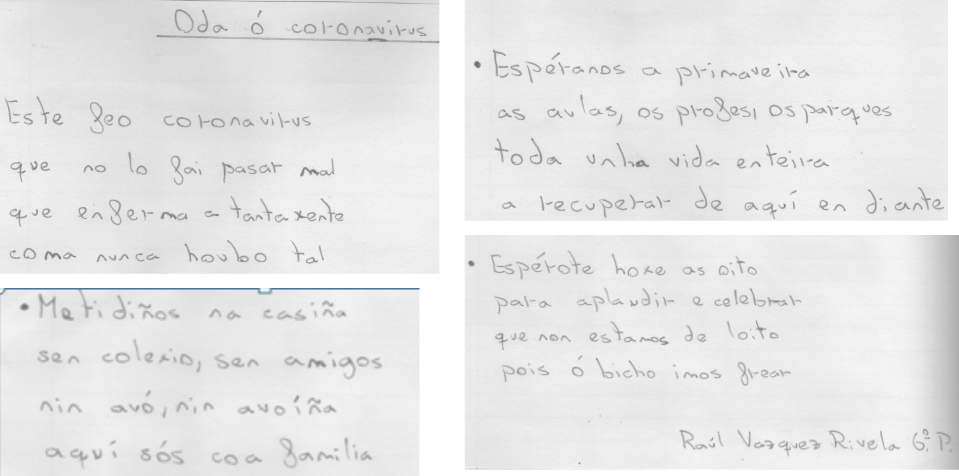 Oda ó coronavirus
Este feo coronavirus
que no lo fai pasar mal
que enferma a tantaxente
coma nunca houbo tal
• Metidiños na casiña
sen colexio, sen amigos
nin avó, nin avoíña
aquí sós coa familia
• Espéranos a primaveira
as aulas, os profes, os parques
toda unha vida enteira
a recuperar de aquí en diante
• Espérote hoxe as oito
para aplaudir e celebrar
que non estamos de loito
pois ó bicho imos frear
Raúl Vazquez Rivela 6º P.